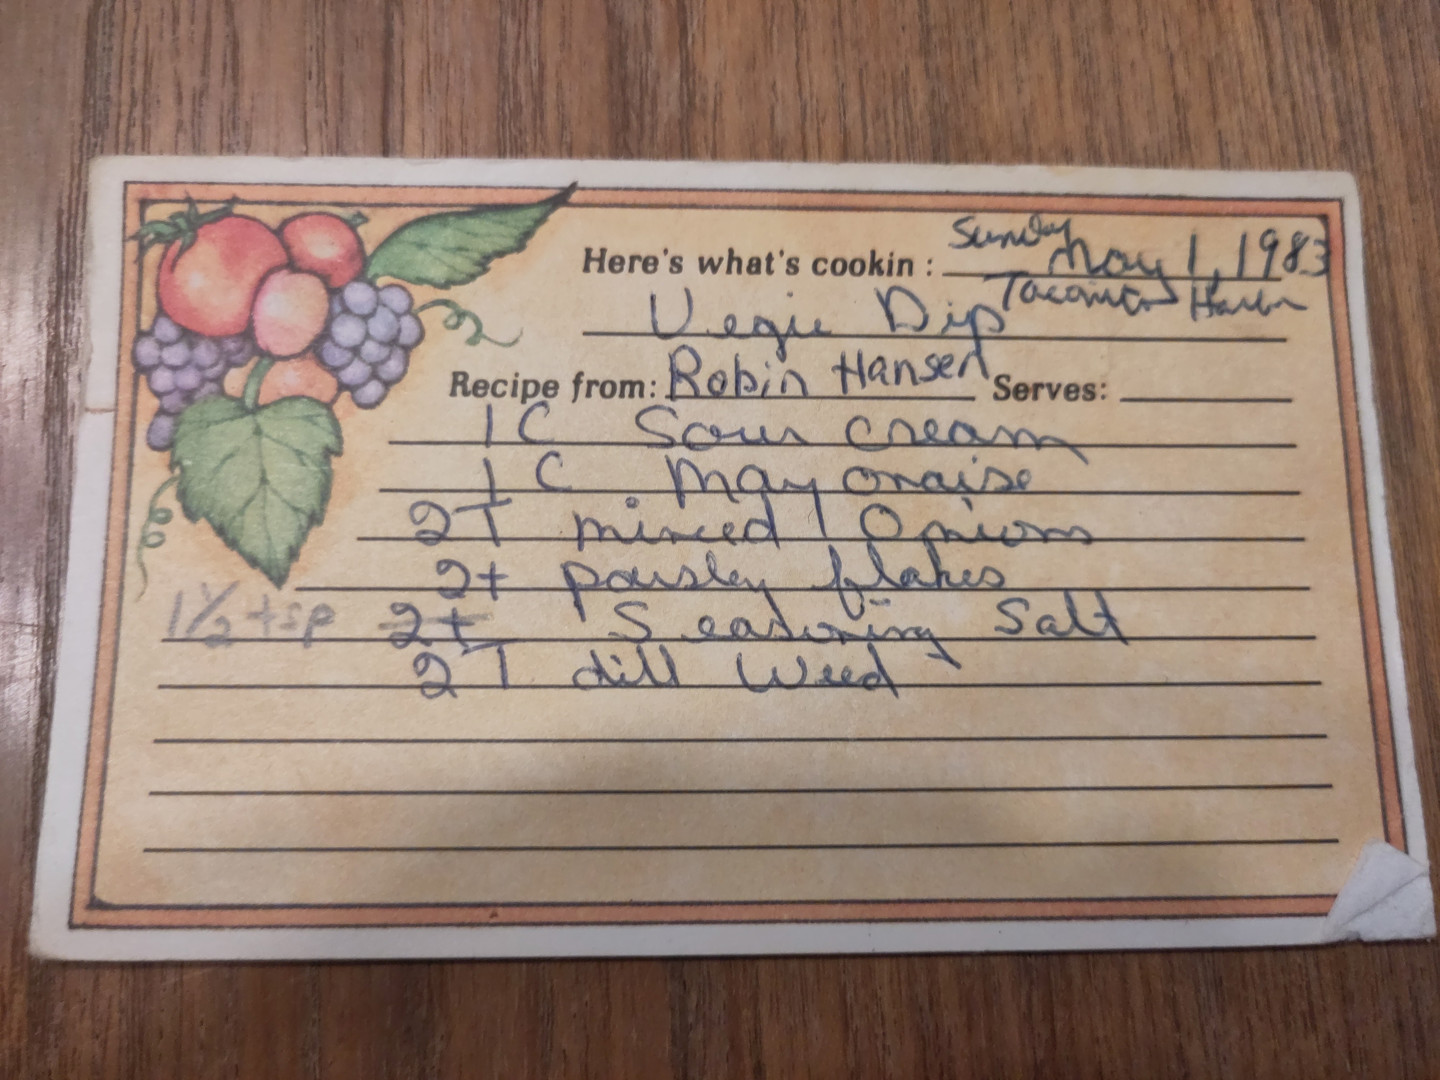 Sunday
Here's what's cookin : May 1, 1983
Tacoma
Vegie Dip
Recipe from: Robin Hansen Serves:
1 C Sour cream
1 C Mayonaise
2T minced Onions
2t parsley flakes
1 1/2 tsp 2t Seasoning Salt
2T dill Weed